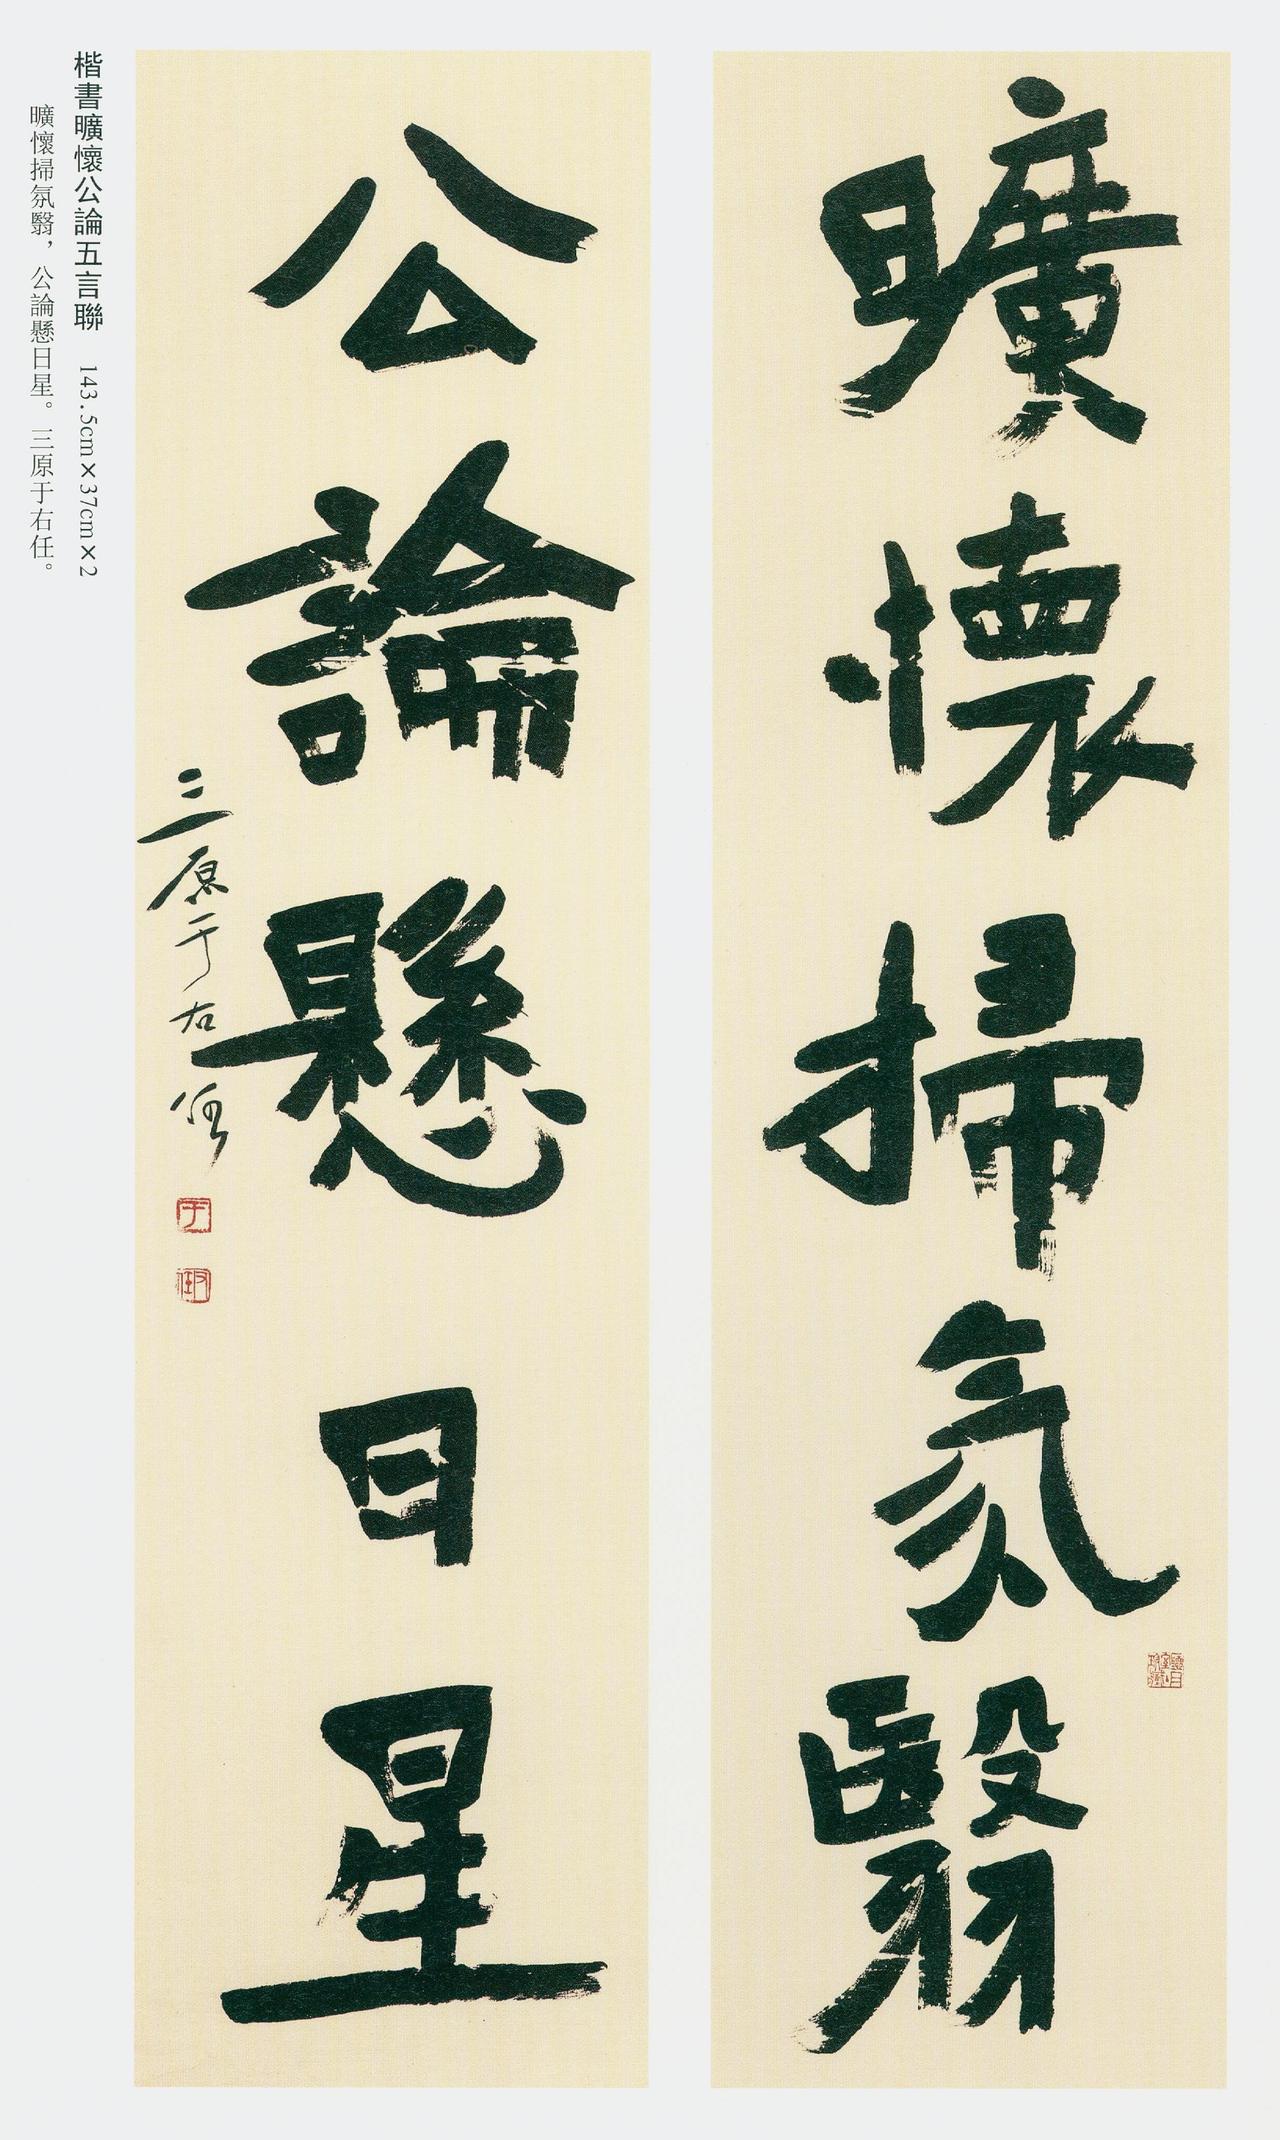 曠懷掃氛翳
公論懸日星
三原于右任
楷書曠懷公論五言聯 143.5cm×37cm×2
曠懷掃氛翳，公論懸日星。三原于右任。